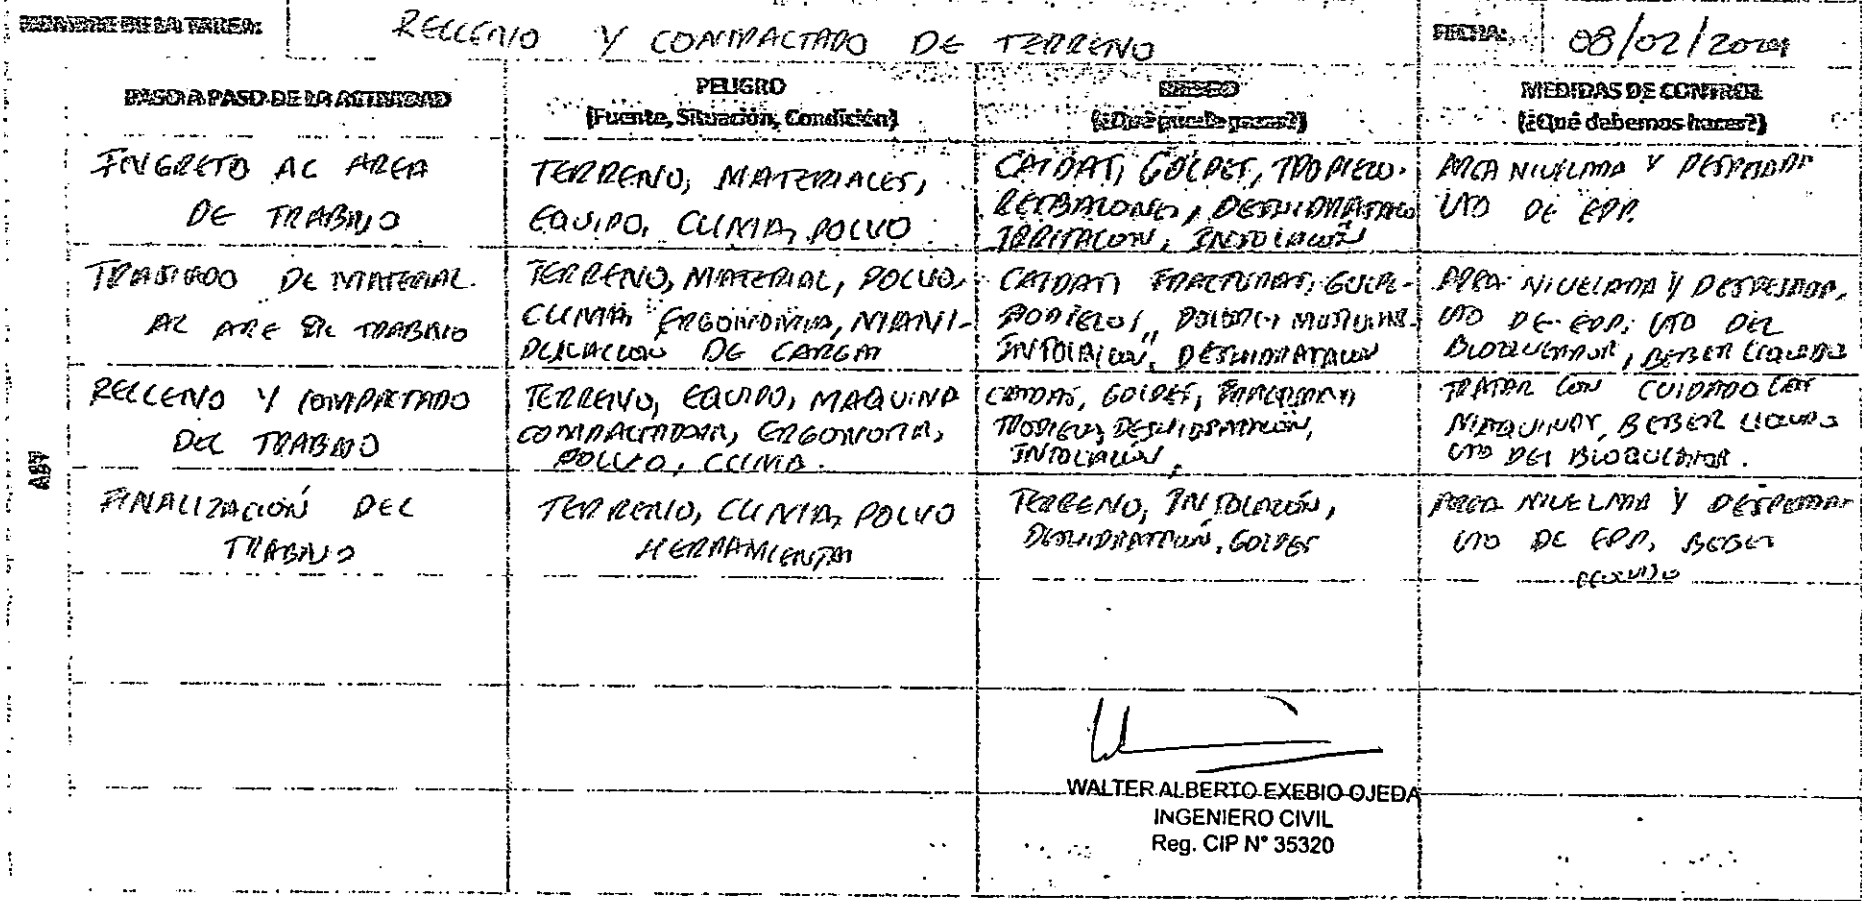 NOMBRE DE LA TAREA: RELLENO Y COMPACTADO DE TERRENO FECHA: 08/02/2021
PASO A PASO DE LA ACTIVIDAD
PELIGRO
(Fuente, Situación, Condición)
RIESGO
(¿Qué puede pasar?)
MEDIDAS DE CONTROL
(¿Qué debemos hacer?)
INGRESO AL AREA
DE TRABAJO
TERRENO, MATERIALES,
EQUIPO, CLIMA, POLVO
CAIDAS, GOLPES, TROPIEZO.
RESBALONES, DESHIDRATACION
IRRITACION, INSOLACIÓN
AREA NIVELADA Y DESPEJADA
USO DE EPP.
TRASLADO DE MATERIAL.
AL ARE DE TRABAJO
TERRENO, MATERIAL, POLVO,
CLIMA, ERGONOMIA, MANI-
PULACION DE CARGAS
CAIDAS, FRACTURAS, GOLPE-
INSOLACION, DESHIDRATACION
AREA NIVELADA Y DESPEJADA,
USO DE EPP, USO DEL
BLOQUEADOR, BEBER LIQUIDO
RELLENO Y COMPACTADO
DEL TRABAJO
TERRENO, EQUIPO, MAQUINA
COMPACTADORA, ERGONOMIA,
POLVO, CLIMA.
CAIDAS, GOLPES, FRACTURAS
TROPIEZO, DESHIDRATACIÓN,
INSOLACIÓN,
TRATAR CON CUIDADO LAS
MAQUINAS, BEBER LIQUIDO
USO DEL BLOQUEADOR.
FINALIZACIÓN DEL
TRABAJO
TERRENO, CLIMA, POLVO
HERRAMIENTAS
TERRENO, INSOLACIÓN,
DESHIDRATACION, GOLPES
AREA NIVELADA Y DESPEJADA
USO DE EPP, BEBER
LIQUIDO
ABV
WALTER ALBERTO EXEBIO OJEDA
INGENIERO CIVIL
Reg. CIP N° 35320